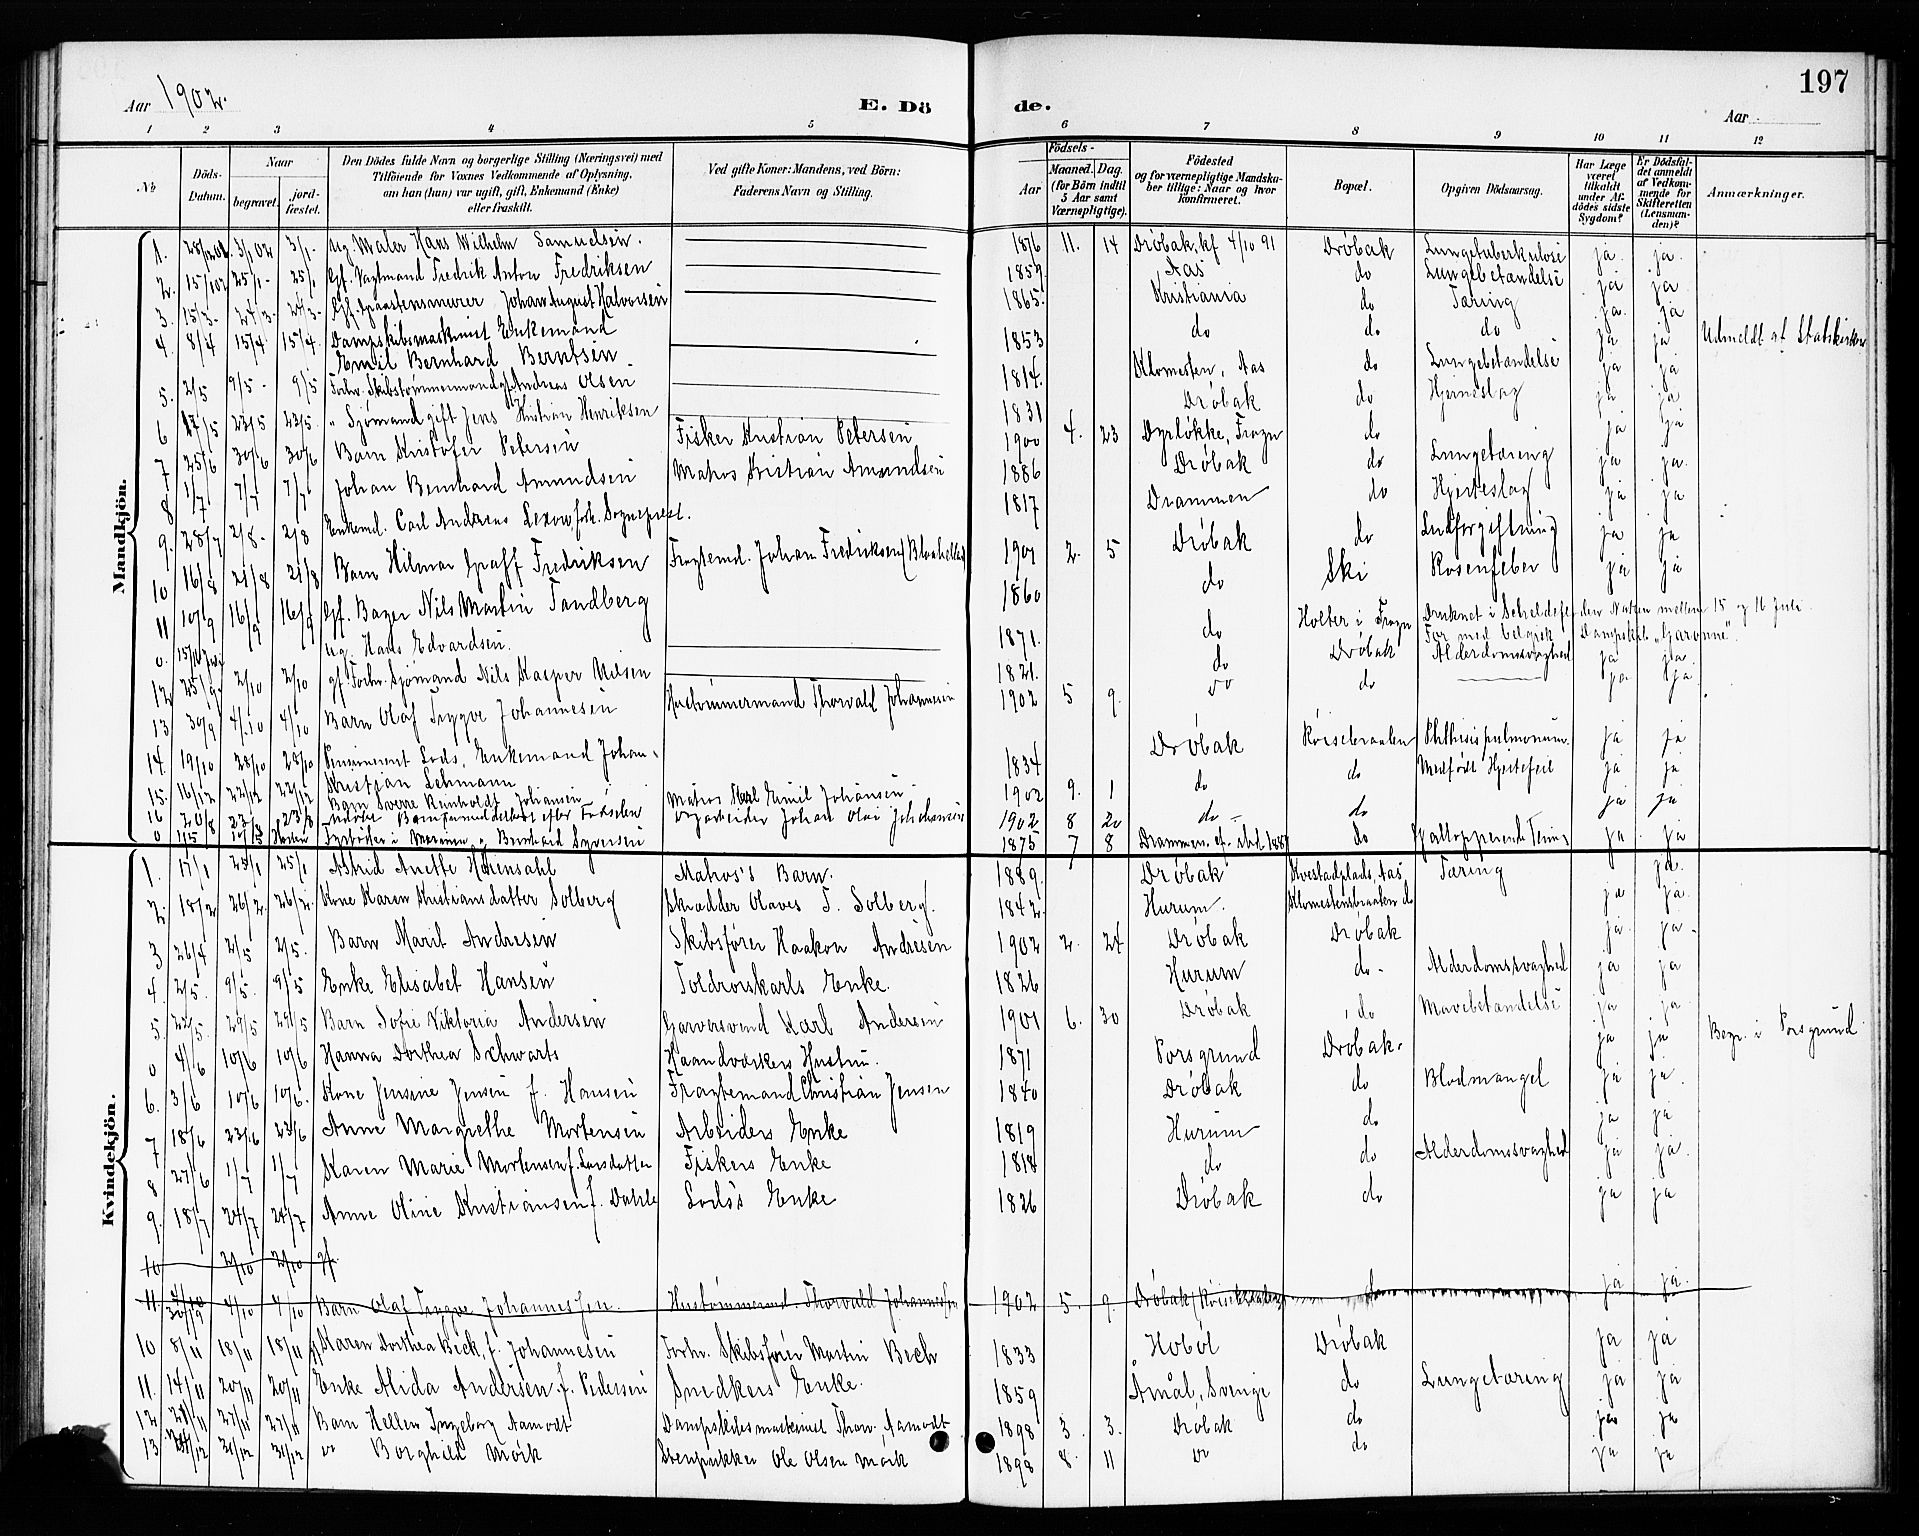 197
Aar 1902. E. Dö de. Aar
1 2 3 4 5 6 7 8 9 10 11 12
No Döds-Datum. Naar begravet. jord-fæstet. Den Dödes fulde Navn og borgerlige Stilling (Næringsvei) med Tilföiende for Voxnes Vedkommende af Oplysning, om han (hun) var ugift, gift, Enkemand (Enke) eller fraskilt. Ved gifte Koner: Mandens, ved Börn: Faderens Navn og Stilling. Aar Födsels- Maaned. Dag. (for Börn indtil 5 Aar samt Værnepligtige). Födested og for værnepligtige Mandskaber tillige: Naar og hvor konfirmeret. Bopæl. Opgiven Dödsaarsag. Har Læge været tilkaldt under Afdödes sidste Sygdom? Er Dödsfaldet anmeldt af Vedkommende for Skifteretten (Lensmanden)? Anmærkninger.
Mandkjön.
1. 3/1 02 3/1- ug. Maler Hans Wilhelm Samuelsen. 1876 11. 14 Dröbak, kf. 4/10 91 Dröbak Lungetuberkulose ja. ja.
2. 15/1 02 25/1- 25/1 Gf. Vagtmand Fredrik Anton Fredriksen 1859. Aas do Lungebetændelse ja ja
3. 15/3- 24/3- 24/3- Gf. Graastensmurer Johan August Halvorsen 1865. Kristiania do Tæring ja. ja
4. 8/4 15/4. 15/4. Dampskibsmaskinist Enkemand 1853 do do do ja ja Udmeldt af Statskirken
Emil Bernhard Berntsen
5. 2/5 9/5- 9/5 Forhv. Skibstømmermand gf. Andreas Olsen 1814. Klomesten, Aas do Lungebetændelse ja ja
6 17/5 23/5 23/5. " Sjømand gift Jens Kristian Henriksen 1831 Dröbak do Hjerneslag ja ja
7 25/6 30/6 30/6 Barn Kristofer Petersen Fisker Kristian Petersen 1900 4. 23 Dyrløkke, Frogn do ja ja
8 1/7 7/7 7/7 Johan Bernhard Amundsen Matros Kristian Amundsen 1886 Dröbak do Lungetæring ja ja.
9. 28/7 2/8- 2/8 Enkemd. Carl Andreas Lexow, forh. Sogneprest. 1817 Drammen do Hjerteslag ja ja
10 16/8 21/8 21/8 Barn Hilmar Graff Fredriksen Fragtemd. Johan Fredriksen 1901 2. 5 Dröbak do ja ja
11 10/9 16/9 16/9 Gf. Bager Nils Martin Tandberg 1860 do Ski Rosenfeber ja ja
0. 15/16 July ug. Hans Edvardsen. 1871. do Holter i Frogn Druknet i Scheldefl den Natten mellem 15 og 16 Juli
For med belgisk Dampskib "Garonne".
12 25/9 2/10 2/10 gf. Forhv. Sjømand Nils Kasper Nilsen 1821. do Dröbak Alderdomssvaghed ja ja.
13 30/9 4/10 4/10 Barn Olaf Trygve Johannesen Hustømmermand Thorvald Johannesen 1902 5 9. do do ja ja.
14. 19/10 28/10 28/10 Pensioneret Lods, Enkemand Johan 1834 Dröbak Phthisis pulmonum. ja ja
Kristian Lehmann
15. 16/12 22/12 22/12 Barn Sverre Reinholdt Johansen Matros Emil Johansen 1902 9. 1 do do Medfødt Hjertefeil ja ja
16 20/8 23/8 23/8 efter Fødselen Arbeider Johan Olai Johansen 1902 8 20 do- do ja ja
0 Horten Fyrbøder i Marinen Bernhard Syversen 1875 7 8 Drammen do Gallopperende ja. ja
Kvindekjön.
1. 17/1 25/1 25/1 Astrid Anette Matros's Barn. 1889. Dröbak Aas, Tæring ja.
2. 18/2 26/2. 26/2. Kone Karen Kristiansdatter Solberg Skrædder Olaves T. Solberg. 1842. Hurum. Klomestensbraaten do ja ja.
3 26/4 2/5 2/5. Barn Marit Andresen Skibsfører Haakon Andresen 1902 2. 24 Dröbak Dröbak ja ja.
4. 2/5. 9/5. 9/5 Enke Elisabet Hansen Toldroerskarls Enke. 1826 Hurum do- Alderdomssvaghed ja ja
5. 22/5. 29/5 29/5 Barn Sofie Viktoria Andersen Garversvend Karl Andersen 1901 6. 30 Dröbak do Mavebetændelse ja ja
0 4/6 10/6 10/6 Hanna Dorthea Schwarts Haandværkers Hustru. 1871 Porsgrund Dröbak. ja ja Begr. i Porsgrund
6. 3/6 10/6 10/6. Kone Jensine Jensen f. Hansen Fragtemand Christian Jensen 1840 Dröbak do Blodmangel ja ja.
7 18/6 23/6 23/6 Anne Margrethe Mortensen Arbeiders Enke 1819 Hurum do ja ja
8 27/6 1/7 1/7 Karen Marie Mortensen f. Larsdatter Fiskers Enke 1818 do do Alderdomssvaghed ja ja.
9. 18/7 24/7 24/7 Anne Oline Kristiansen f. Dahle Lods's Enke 1826 Dröbak do ja ja
10 2/10 2/10 gf.
11 30/9 4/10 4/10 Barn Olaf Trygve Johannessen. Hustømmermd. Thorvald Johannessen 1902 5. 9. Dröbak do ja ja.
10 8/11 18/11 18/11 gf. Karen Dorthea Beck, f. Johannesen Forhv. Skibsfører Martin Bech 1833 Hobøl Dröbak ja ja
11. 14/11 20/11 20/11 Enke Alida Andersen f. Pedersen Snedkers Enke. 1859 Åmål, Sverige do Lungetæring ja ja
12 21/11 27/11 27/11 Barn Hellen Ingeborg Aamodt Dampskibsmaskinist Thorv. Aamodt 1898 3 3. Dröbak do ja ja
13 31/12 31/12 do Borghild Mörk Stenpukker Ole Olsen Mörk 1898 8. 11 do do ja ja